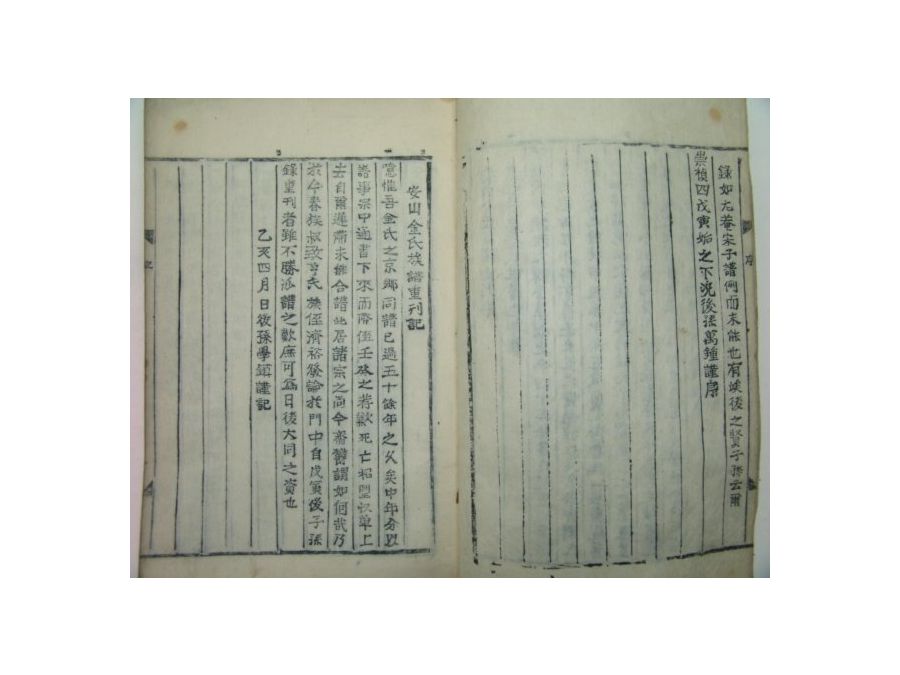 錄如尤菴宋子譜例而未能也有竢後之賢子孫云爾
崇禎四戊寅始之下浣後孫萬鍾謹序
安山金氏族譜重刊記
噫惟吾金氏之京鄉同譜已過五十餘年之久矣中年分
譜事宗中通書下來而際値壬癸之荐歉死亡相望収單上
去自爾遷滯未能合譜此居諸宗之尚今齎鬱謂如何哉乃
於今春族叔致亨氏族侄濟裕發論於門中自戊寅後子孫
錄重刊者雖不勝派譜之歎庶可爲日後大同之資也
乙亥四月日後孫學鎭謹記
序
記